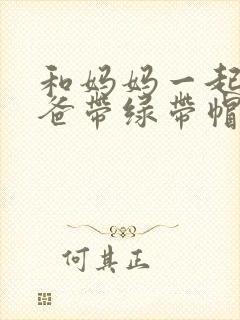 和妈妈一起
爸带绿带帽
何其正